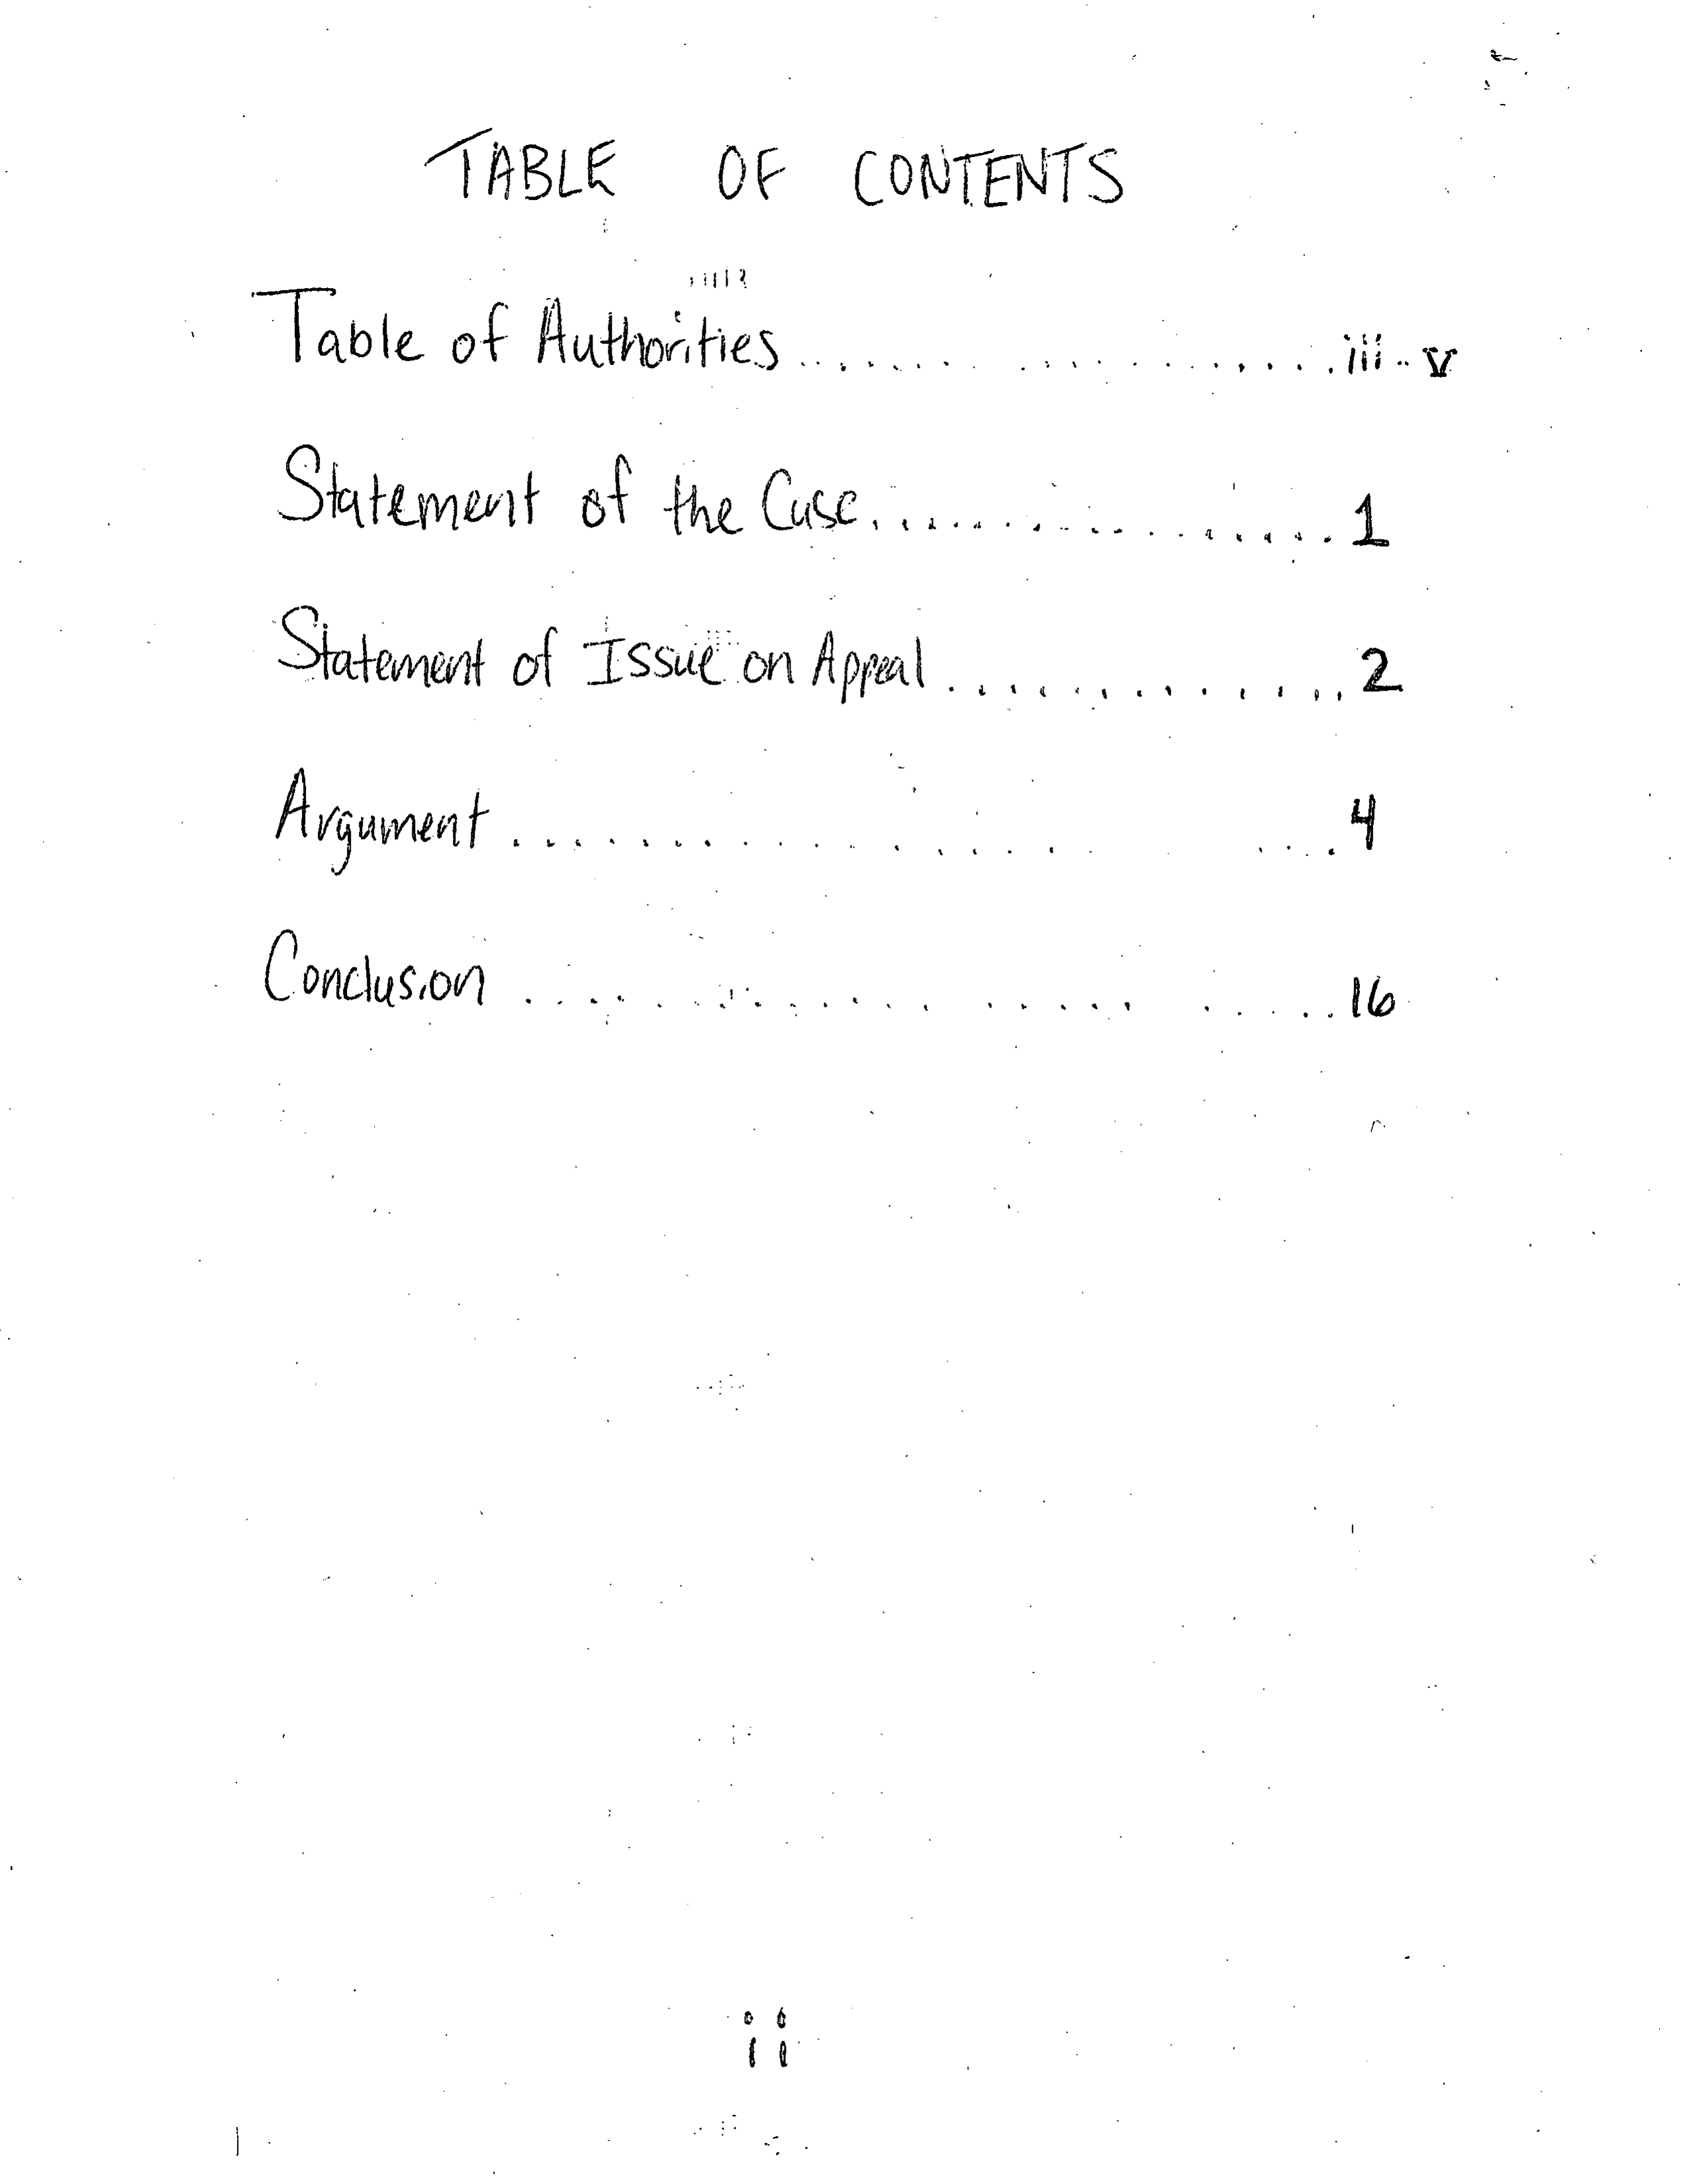 TABLE OF CONTENTS
Table of Authorities....................iii-v
Statement of the Case....................1
Statement of Issue on Appeal...............2
Argument......................4
Conclusion......................16
ii